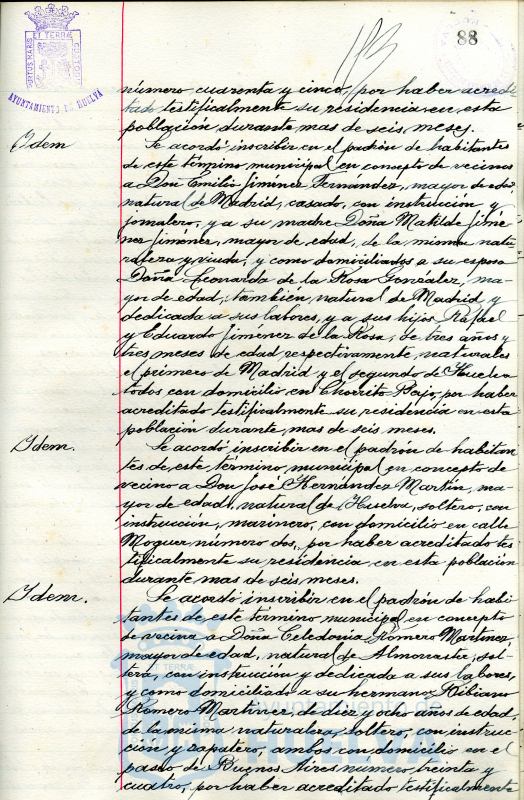 88
113
PORTUS MARIS ET TERRÆ CUSTODIA
AYUNTAMIENTO DE HUELVA
número cuarenta y cinco, por haber acredi
tado testificalmente su residencia en esta
población durante mas de seis meses.
Idem
Se acordó inscribir en el padrón de habitantes
de este término municipal en concepto de vecinos
a Don Emilio Jiménez Fernández, mayor de edad
natural de Madrid, casado, con instrucción y
jornalero, y a su madre Doña Matilde Jimé
nez Jiménez, mayor de edad, de la misma natu
raleza y viuda, y como domiciliados a su esposa
Doña Leonarda de la Rosa González, ma
yor de edad, tambien natural de Madrid y
dedicada a sus labores, y a sus hijos Rafael
y Eduardo Jiménez de la Rosa, de tres años y
tres meses de edad respectivamente, naturales
el primero de Madrid y el segundo de Huelva
todos con domicilio en Chorrito Bajo, por haber
acreditado testificalmente su residencia en esta
población durante mas de seis meses.
Idem.
Se acordó inscribir en el padrón de habitan
tes de este termino municipal en concepto de
vecino a Don José Hernández Martín, ma
yor de edad, natural de Huelva, soltero, con
instrucción, marinero, con domicilio en calle
Moguer número dos, por haber acreditado tes
tificalmente su residencia en esta población
durante mas de seis meses.
Idem.
Se acordó inscribir en el padrón de habi
tantes de este termino municipal en concepto
de vecina a Doña Celedonia Romero Martínez
mayor de edad, natural de Almonaster, sol-
tera, con instrucción y dedicada a sus labores,
y como domiciliado a su hermano Bibiano
Romero Martinez, de diez y ocho años de edad,
de la misma naturaleza, soltero, con instruc
ción y zapatero, ambos con domicilio en el
paseo de Buenos Aires número treinta y
cuatro, por haber acreditado testificalmente
ayuntamiento de
HUELVA